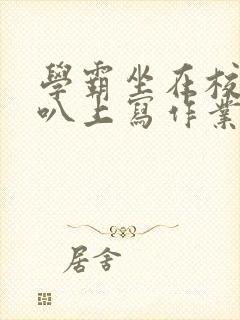 學霸坐在校
叭上寫作業
居舍